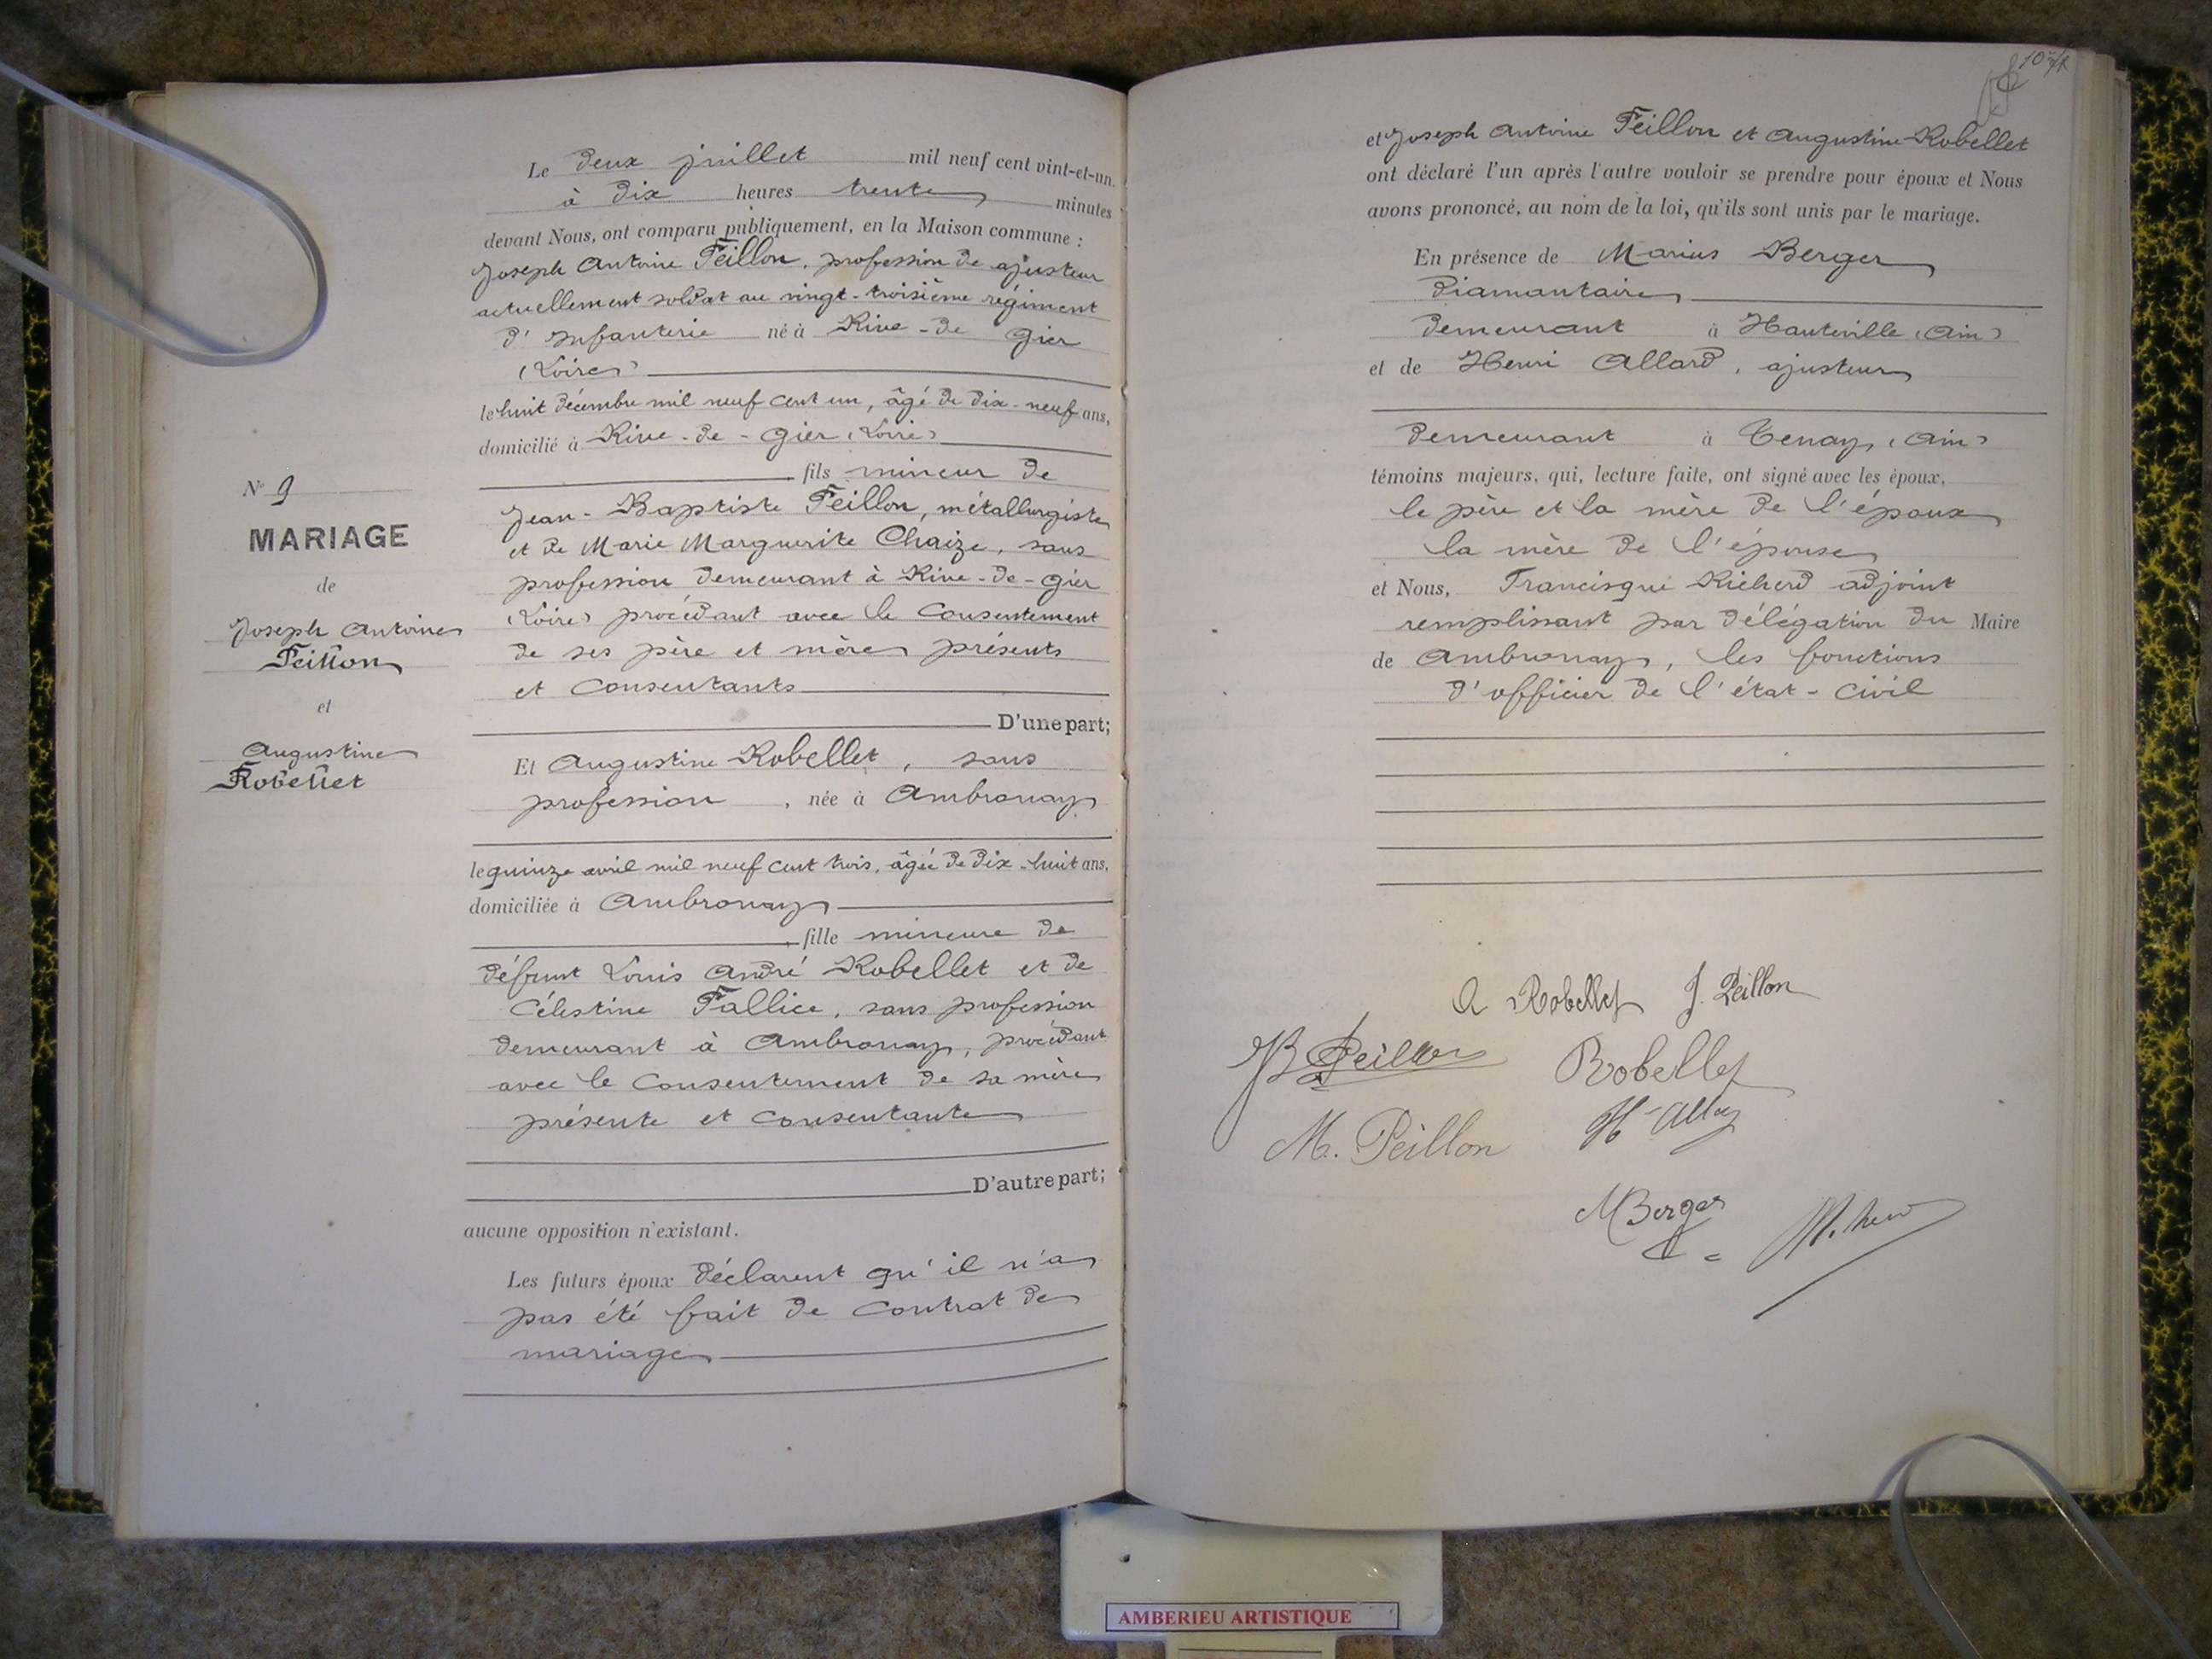 Le deux juillet mil neuf cent vint-et-un.
à dix heures trente minutes
devant Nous, ont comparu publiquement, en la Maison commune :
Joseph Antoine Peillon, profession de ajusteur
actuellement soldat au vingt-troisième régiment
d'Infanterie né à Rive-de Gier
(Loire)
le huit décembre mil neuf cent un, âgé de dix-neuf ans,
domicilié à Rive-de-Gier (Loire)
fils mineur de
Jean-Baptiste Peillon, métallurgiste
et de Marie Marguerite Chaize, sans
profession demeurant à Rive-de-Gier
(Loire) procédant avec le consentement
de ses père et mère présents
et consentants
D'une part;
Et Augustine Robellet, sans
profession, née à Ambronay
le quinze avril mil neuf cent trois, âgée de dix-huit ans,
domiciliée à Ambronay
fille mineure de
défunt Louis André Robellet et de
Célestine Pallice, sans profession
demeurant à Ambronay, procédant
avec le consentement de sa mère
présente et consentante
D'autre part;
aucune opposition n'existant.
Les futurs époux déclarent qu'il n'a
pas été fait de contrat de
mariage
N° 9
MARIAGE
de
Joseph Antoine
Peillon
et
Augustine
Robellet
et Joseph Antoine Peillon et Augustine Robellet
ont déclaré l'un après l'autre vouloir se prendre pour époux et Nous
avons prononcé, au nom de la loi, qu'ils sont unis par le mariage.
En présence de Marius Berger
diamantaire
demeurant à Hauteville (Ain)
et de Henri Allard, ajusteur
demeurant à Tenay (Ain)
témoins majeurs, qui, lecture faite, ont signé avec les époux,
le père et la mère de l'époux
la mère de l'épouse
et Nous, Francisque Richerd adjoint
remplissant par délégation du Maire
de Ambronay, les fonctions
d'officier de l'état-civil
A Robellet J. Peillon
JB Peillon Robellet
M. Peillon
M Berger
AMBERIEU ARTISTIQUE